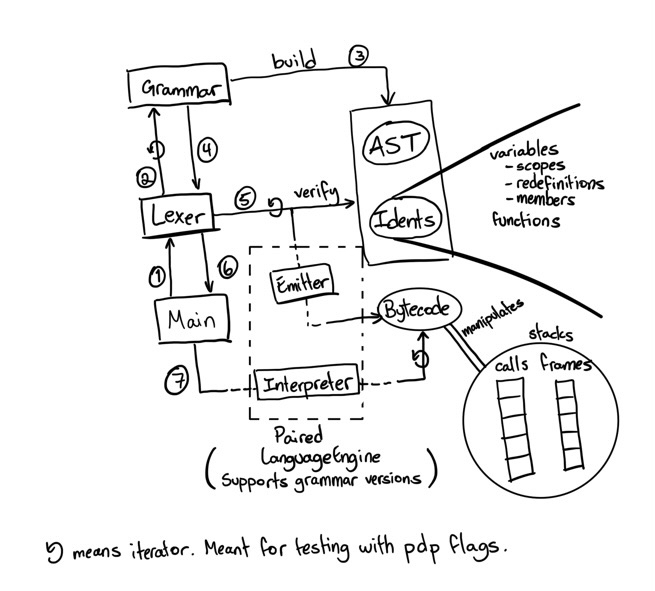 build ③
Grammar
② ④
AST
variables
- scopes
- redefinitions
- members
functions
Lexer
⑤ verify
Idents
① ⑥
Emitter
Main
Bytecode
manipulates
stacks
calls frames
⑦
Interpreter
Paired
LanguageEngine
(Supports grammar versions)
means iterator. Meant for testing with pdp flags.